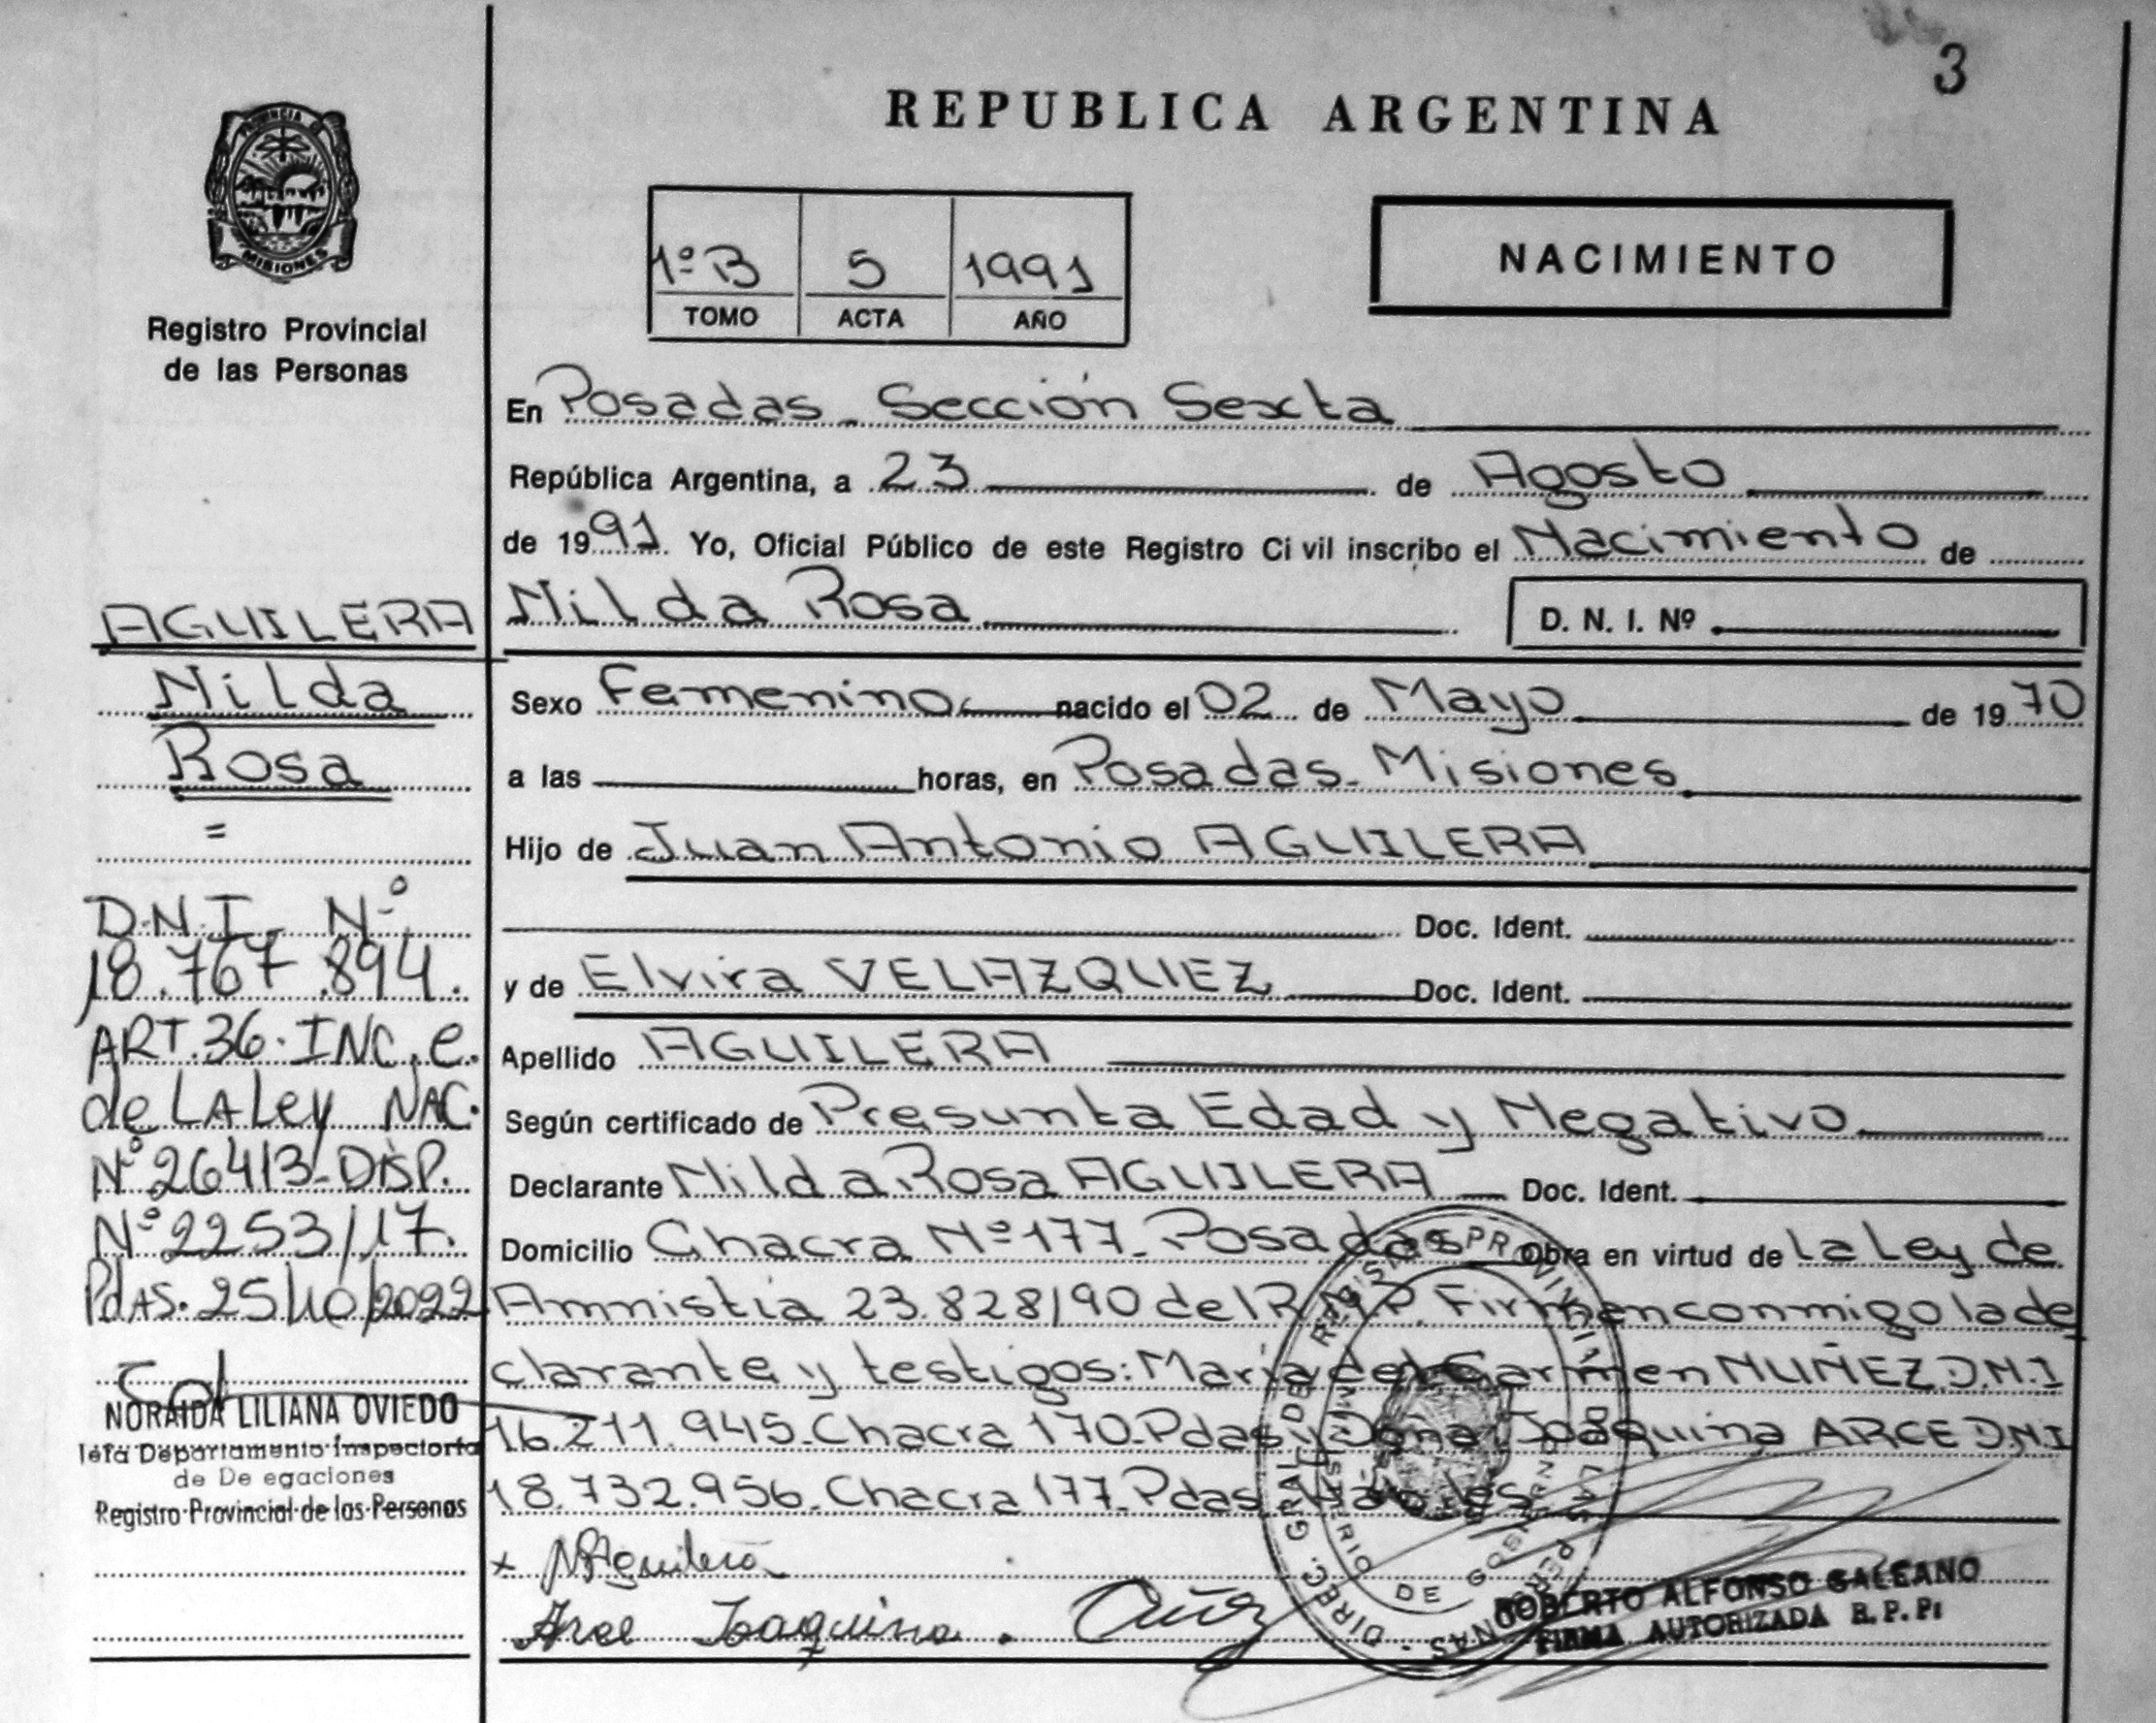 3
REPUBLICA ARGENTINA
PROVINCIA D
MISIONES
Registro Provincial
de las Personas
1º B 5 1991
TOMO ACTA AÑO
NACIMIENTO
En Posadas - Sección Sexta
República Argentina, a 23 de Agosto
de 1991 Yo, Oficial Público de este Registro Ci vil inscribo el Nacimiento de
Nilda Rosa D. N. I. Nº
Sexo Femenino nacido el 02 de Mayo de 1970
a las horas, en Posadas - Misiones
Hijo de Juan Antonio AGUILERA
Doc. Ident.
y de Elvira VELAZQUEZ Doc. Ident.
Apellido AGUILERA
Según certificado de Presunta Edad y Negativo
Declarante Nilda Rosa AGUILERA Doc. Ident.
Domicilio Chacra Nº 177 - Posadas Obra en virtud de la Ley de
Amnistia 23.828/90 del R.N.P. Firman conmigo la de
clarante y testigos: María del Carmen NUÑEZ D.N.I
16.211.945 - Chacra 170 - Pdas y Doña Joaquina ARCE D.N.I
18.732.956 - Chacra 177 - Pdas
x NRAguilera
Arce Joaquina.
ROBERTO ALFONSO GALEANO
FIRMA AUTORIZADA R. P. P.
DIREC. GRAL. DE REGISTRO PROVINCIAL DE LAS PERSONAS
MINISTERIO DE GOBIERNO
AGUILERA
Nilda
Rosa
=
D.N.I. Nº
18.767.894.
ART. 36. INC. e.
de LA Ley NAC.
Nº 26413 - DISP.
Nº 2253/17.
PdAS. 25/10/2022
NORAIDA LILIANA OVIEDO
Jefa Departamento Inspectoría
de De egaciones
Registro Provincial de las Personas